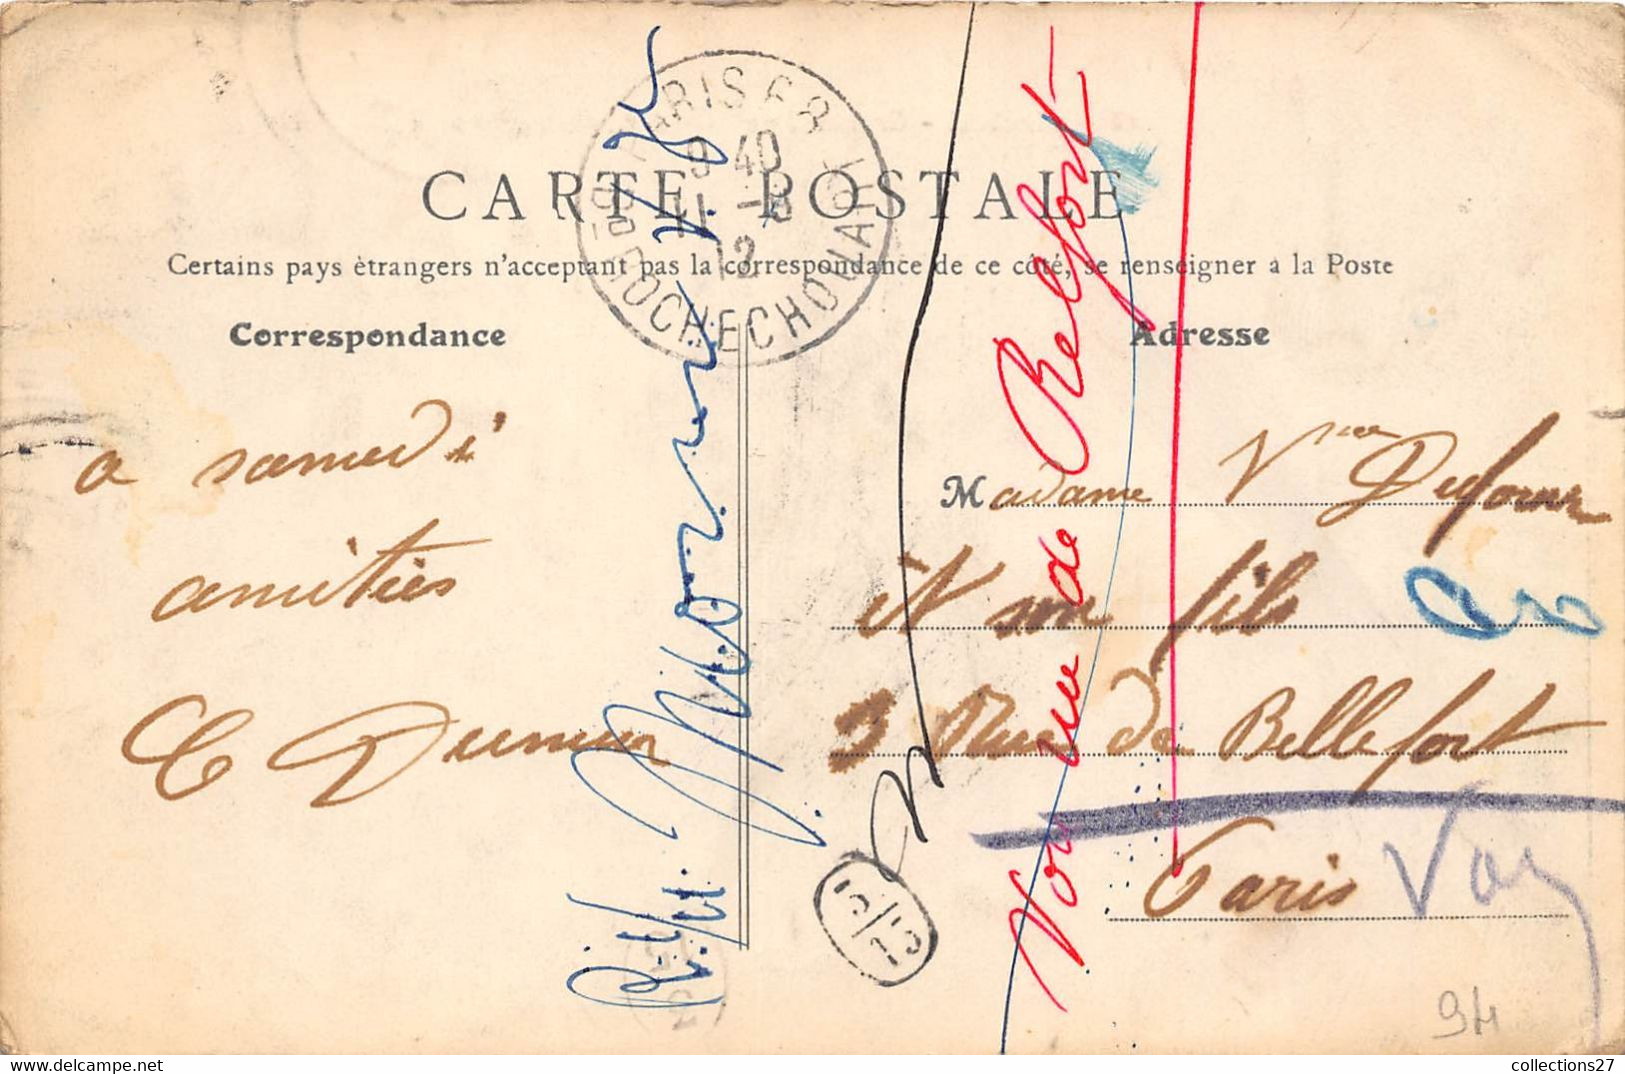 CARTE POSTALE
Certains pays étrangers n'acceptant pas la correspondance de ce côté, se renseigner a la Poste
Correspondance
Adresse
PARIS 68
9 40
11 -8
12
R. DE ROCHECHOUART
a samedi
amitiés
C Dumur
Madame Vve Dufour
et son fils
3 Rue de Bellefort
Paris
Voir rue de Belfort
5/13
94
https://www.delcampe.net
collections27